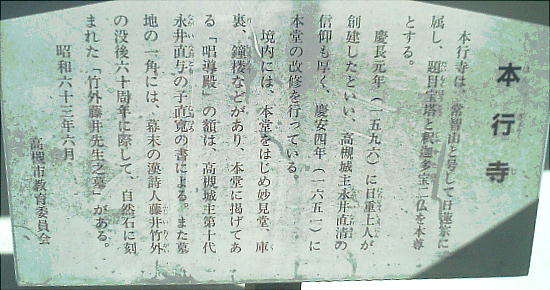 本行寺
本行寺は、常智山と号して日蓮宗に
属し、題目宝塔と釈迦多宝二仏を本尊
とする。
慶長元年(一五九六)に日重上人が
創建したといい、高槻城主永井直清の
信仰も厚く、慶安四年(一六五一)に
本堂の改修を行っている。
境内には、本堂をはじめ妙見堂、庫
裏、鐘楼などがあり、本堂に掲げてあ
る「唱導殿」の額は、高槻城主第十代
永井直与の子直寛の書による。また墓
地の一角には、幕末の漢詩人藤井竹外
の没後六十周年に際して、自然石に刻
まれた「竹外藤井先生之墓」がある。
昭和六十三年六月
高槻市教育委員会